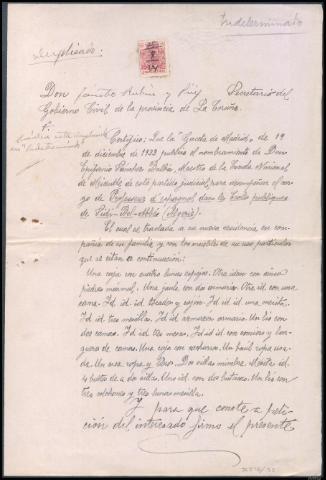 Indeterminado
Duplicado:
Don Rubio y Secretario del
Gobierno Civil de la provincia de La Coruña.
Certifico: Que la Gaceta de Madrid, de 19
de diciembre de 1933 publica el nombramiento de Don
Eugenio Sánchez Maestro de la Escuela Nacional
de de este partido judicial, para desempeñar el car-
go de Profesor de español en las Escuelas publiques
de Sidi-Bel-Abbés (Algeria).
El cual se traslada a su nueva residencia en com-
pañia de su familia y con los muebles de su uso particular
que se citan a continuación:
Una caja con cuatro lunas espejos. Otra idem con cinco
piedras marmol. Una jaula con dos armarios. Otra id. con una
cama. Id. id. id. tocador y cajón. Id. id. id. una mesita.
Id. id. tres mesillas. Id. id. armazon armario. Un lio con
dos camas. Id. id. tres mesas. Id. id. con somiers y lar-
gueros de camas. Una caja con Un baul ropa usa-
da. Un saco ropa y Dos sillas mimbre.
4 bultos de a dos sillas. Uno id. con dos butacas. Un lio con
tres colchones y tres lunas mesilla.
Y para que conste a peti-
ción del interesado firmo el presente